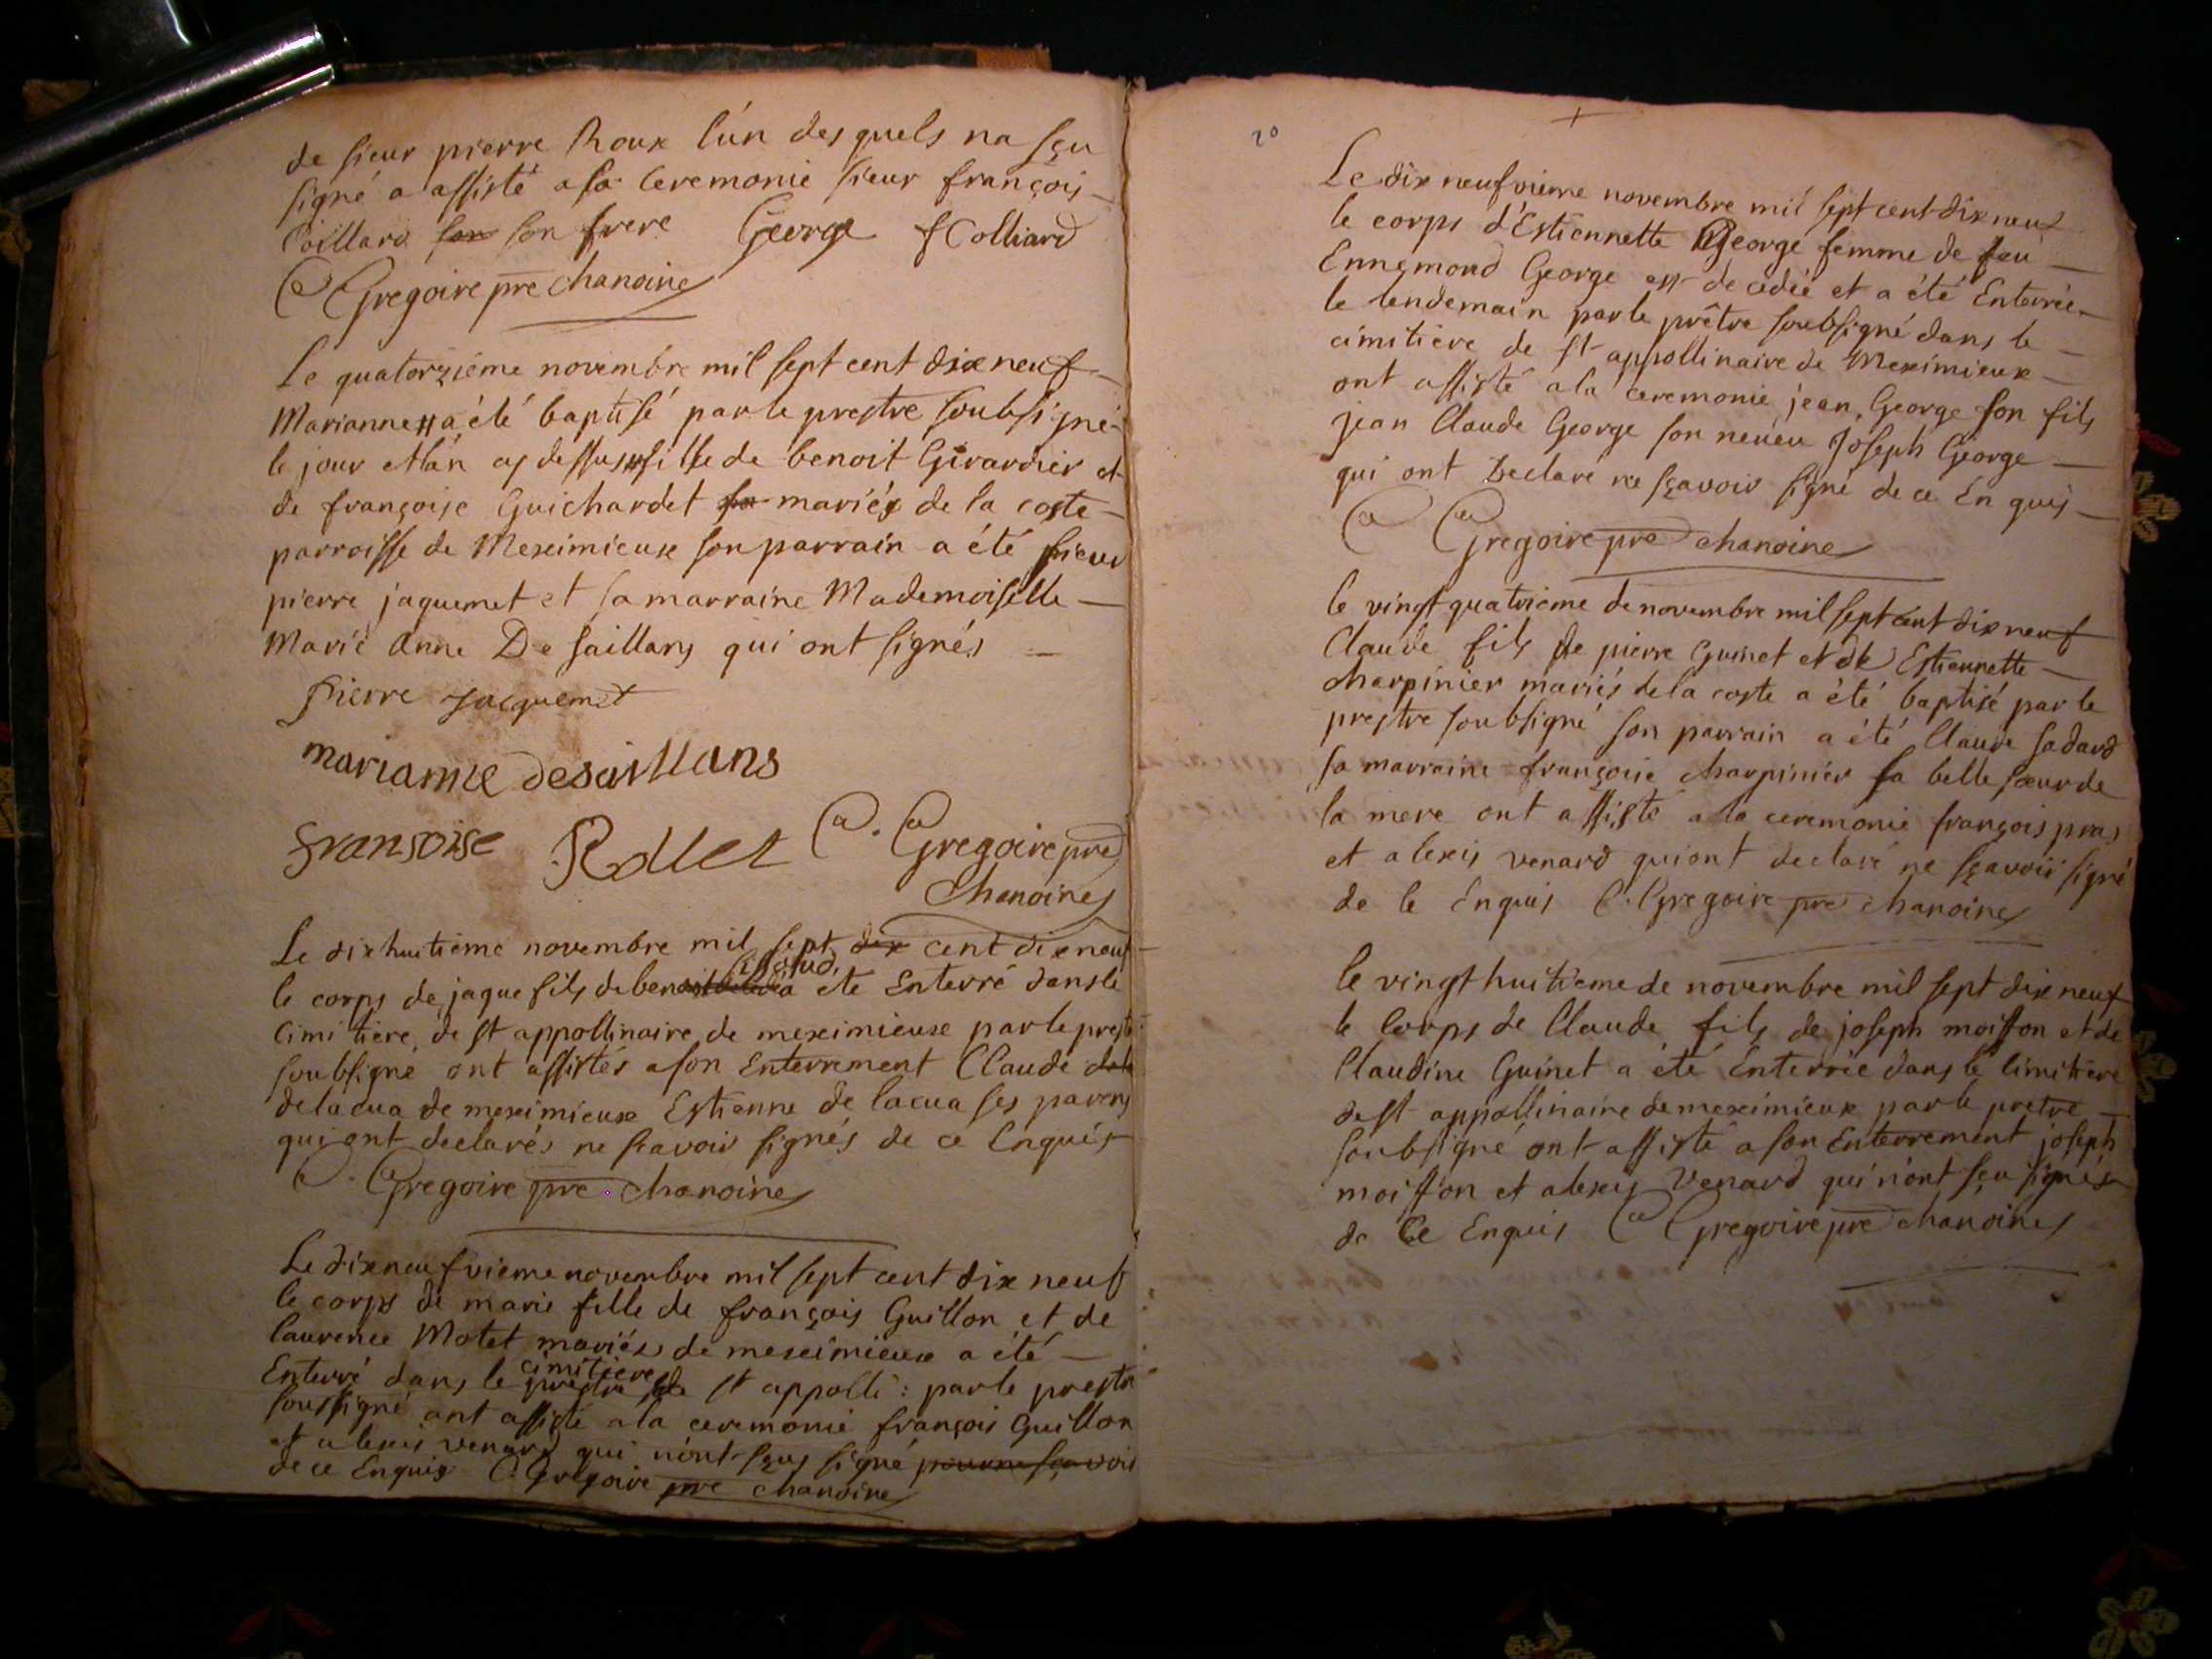 de sieur pierre Roux l'ún desquels na sçu
signé a assisté a sa Ceremonie sieur françois
Coillard son son frere George f Colliard
C Gregoire pre chanoine
Le quatorziéme novembre mil sept cent dix neuf
Marianne a été baptisé par le prestre soubsigné
le jour et lán cy dessus fille de benoit Girardier et
de françoise Guichardet sa mariés de la coste
parroisse de Meximieux son parrain a été sieur
pierre jaquemet et sa marraine Mademoiselle
Marie Anne De saillans qui ont signés
pierre jacquemet
marianne desaillans
fransoise Rollet C. Gregoire pre
Chanoine
Le dixhuitième novembre mil sept dix cent dix neuf
le corps de jaque fils de benoit a eté Enterré dans le
Cimitiere de st appollinaire de meximieux par le prestre
soubsigné ont assistés a son Enterrement Claude
de la cua de meximieux Estienne de lacua ses parens
qui ont declarés ne scavoir signés de ce Enquis
C. Gregoire pre chanoine
Le dixneufvieme novembre mil sept cent dix neuf
le corps de marie fille de françois Guillon et de
laurence Motet mariés de meximieux a été
cimitiere
Enterré dans le prestre de st appolli: par le prestre
soussigné ont assisté a la ceremonie françois Guillon
et alexis venard qui n'ont sçus signé pour ne scavoir
de ce Enquis C. Gregoire pre chanoine
20
Le dix neufvieme novembre mil sept cent dix neuf
le corps d'Estiennette George femme de feu
Ennemond George est decedée et a été Enterrée
le lendemain par le prêtre soubsigné dans le
cimitière de st appollinaire de Meximieux
ont assisté a la ceremonie jean George son fils
jean Claude George son neveu Joseph George
qui ont Declaré ne sçavoir signé de ce Enquis
C Gregoire pre chanoine
le vingt quatriéme de novembre mil sept cent dix neuf
Claude fils de pierre Guinet et de Estiennette
charpinier mariés de la coste a été baptisé par le
prestre soubsigné son parrain a été Claude sadard
sa marraine françoise charpinier sa belle sœur de
la mere ont assisté a la ceremonie françois pras
et alexis venard qui ont declaré ne sçavoir signé
de le Enquis C. Gregoire pre chanoine
le vingt huitième de novembre mil sept dix neuf
le Corps de Claude fils de joseph moisson et de
Claudine Guinet a été Enterrée dans le Cimitiere
de st appollinaire de meximieux par le pretre
soubsigné ont assisté a son Enterrement joseph
moisson et alexis Venard qui n'ont sçu signés
de Ce Enquis C Gregoire pre chanoine